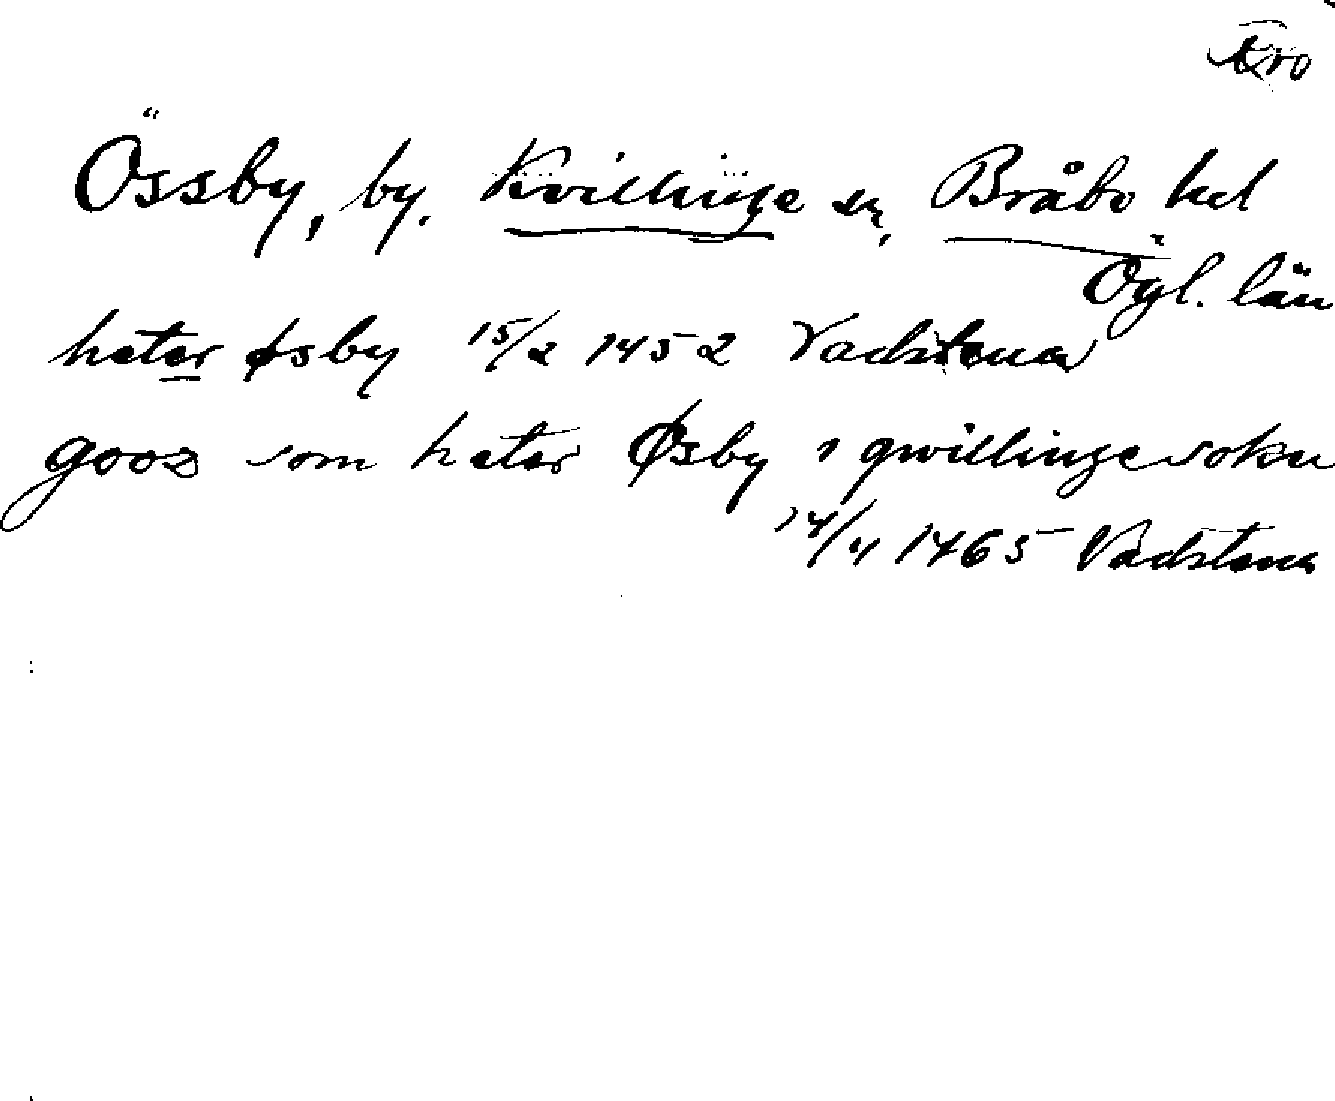 Össby, by. Kvillinge sn, Bråbo hd
Ögl. län
heter øsby 15/2 1452 Vadstena
gooz som heter Øsby i qwillinge sokn
14/4 1465 Vadstena